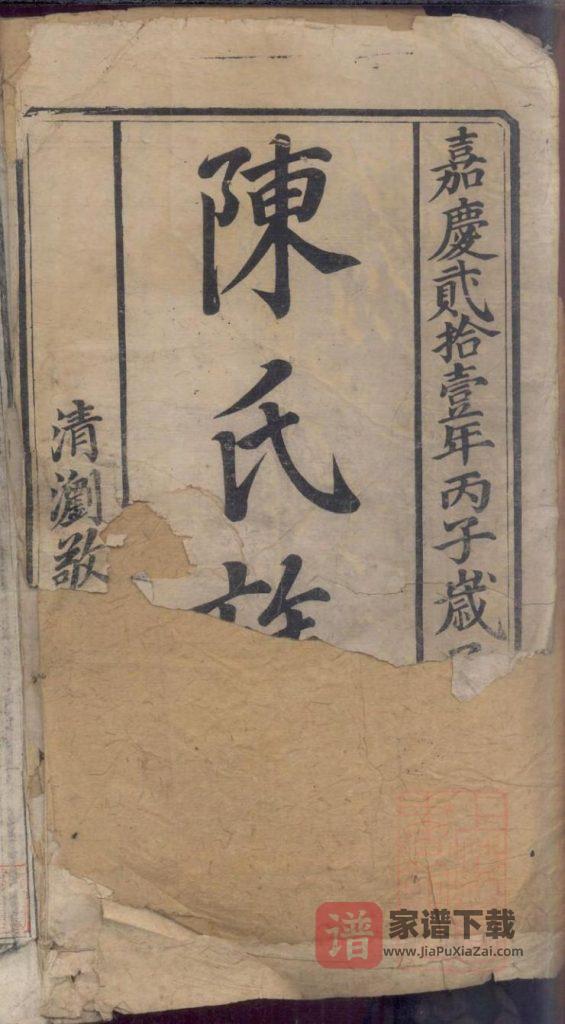 嘉慶貳拾壹年丙子歲
陳氏族
清瀏敬
谱 家谱下载
www.JiaPuXiaZai.com